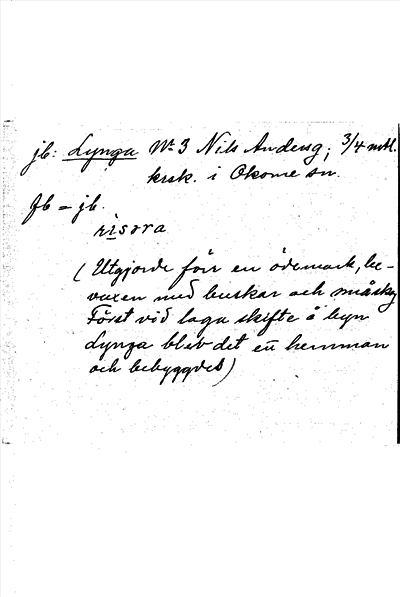 jb: Lynga No 3 Nils Andersg; 3/4 mtl.
krsk. i Okome sn.
Jb = jb.
risɔra
(Utgjorde förr en ödemark, be-
vuxen med buskar och småskog
Först vid laga skifte å byn
Lynga blev det en hemman
och bebyggdes)